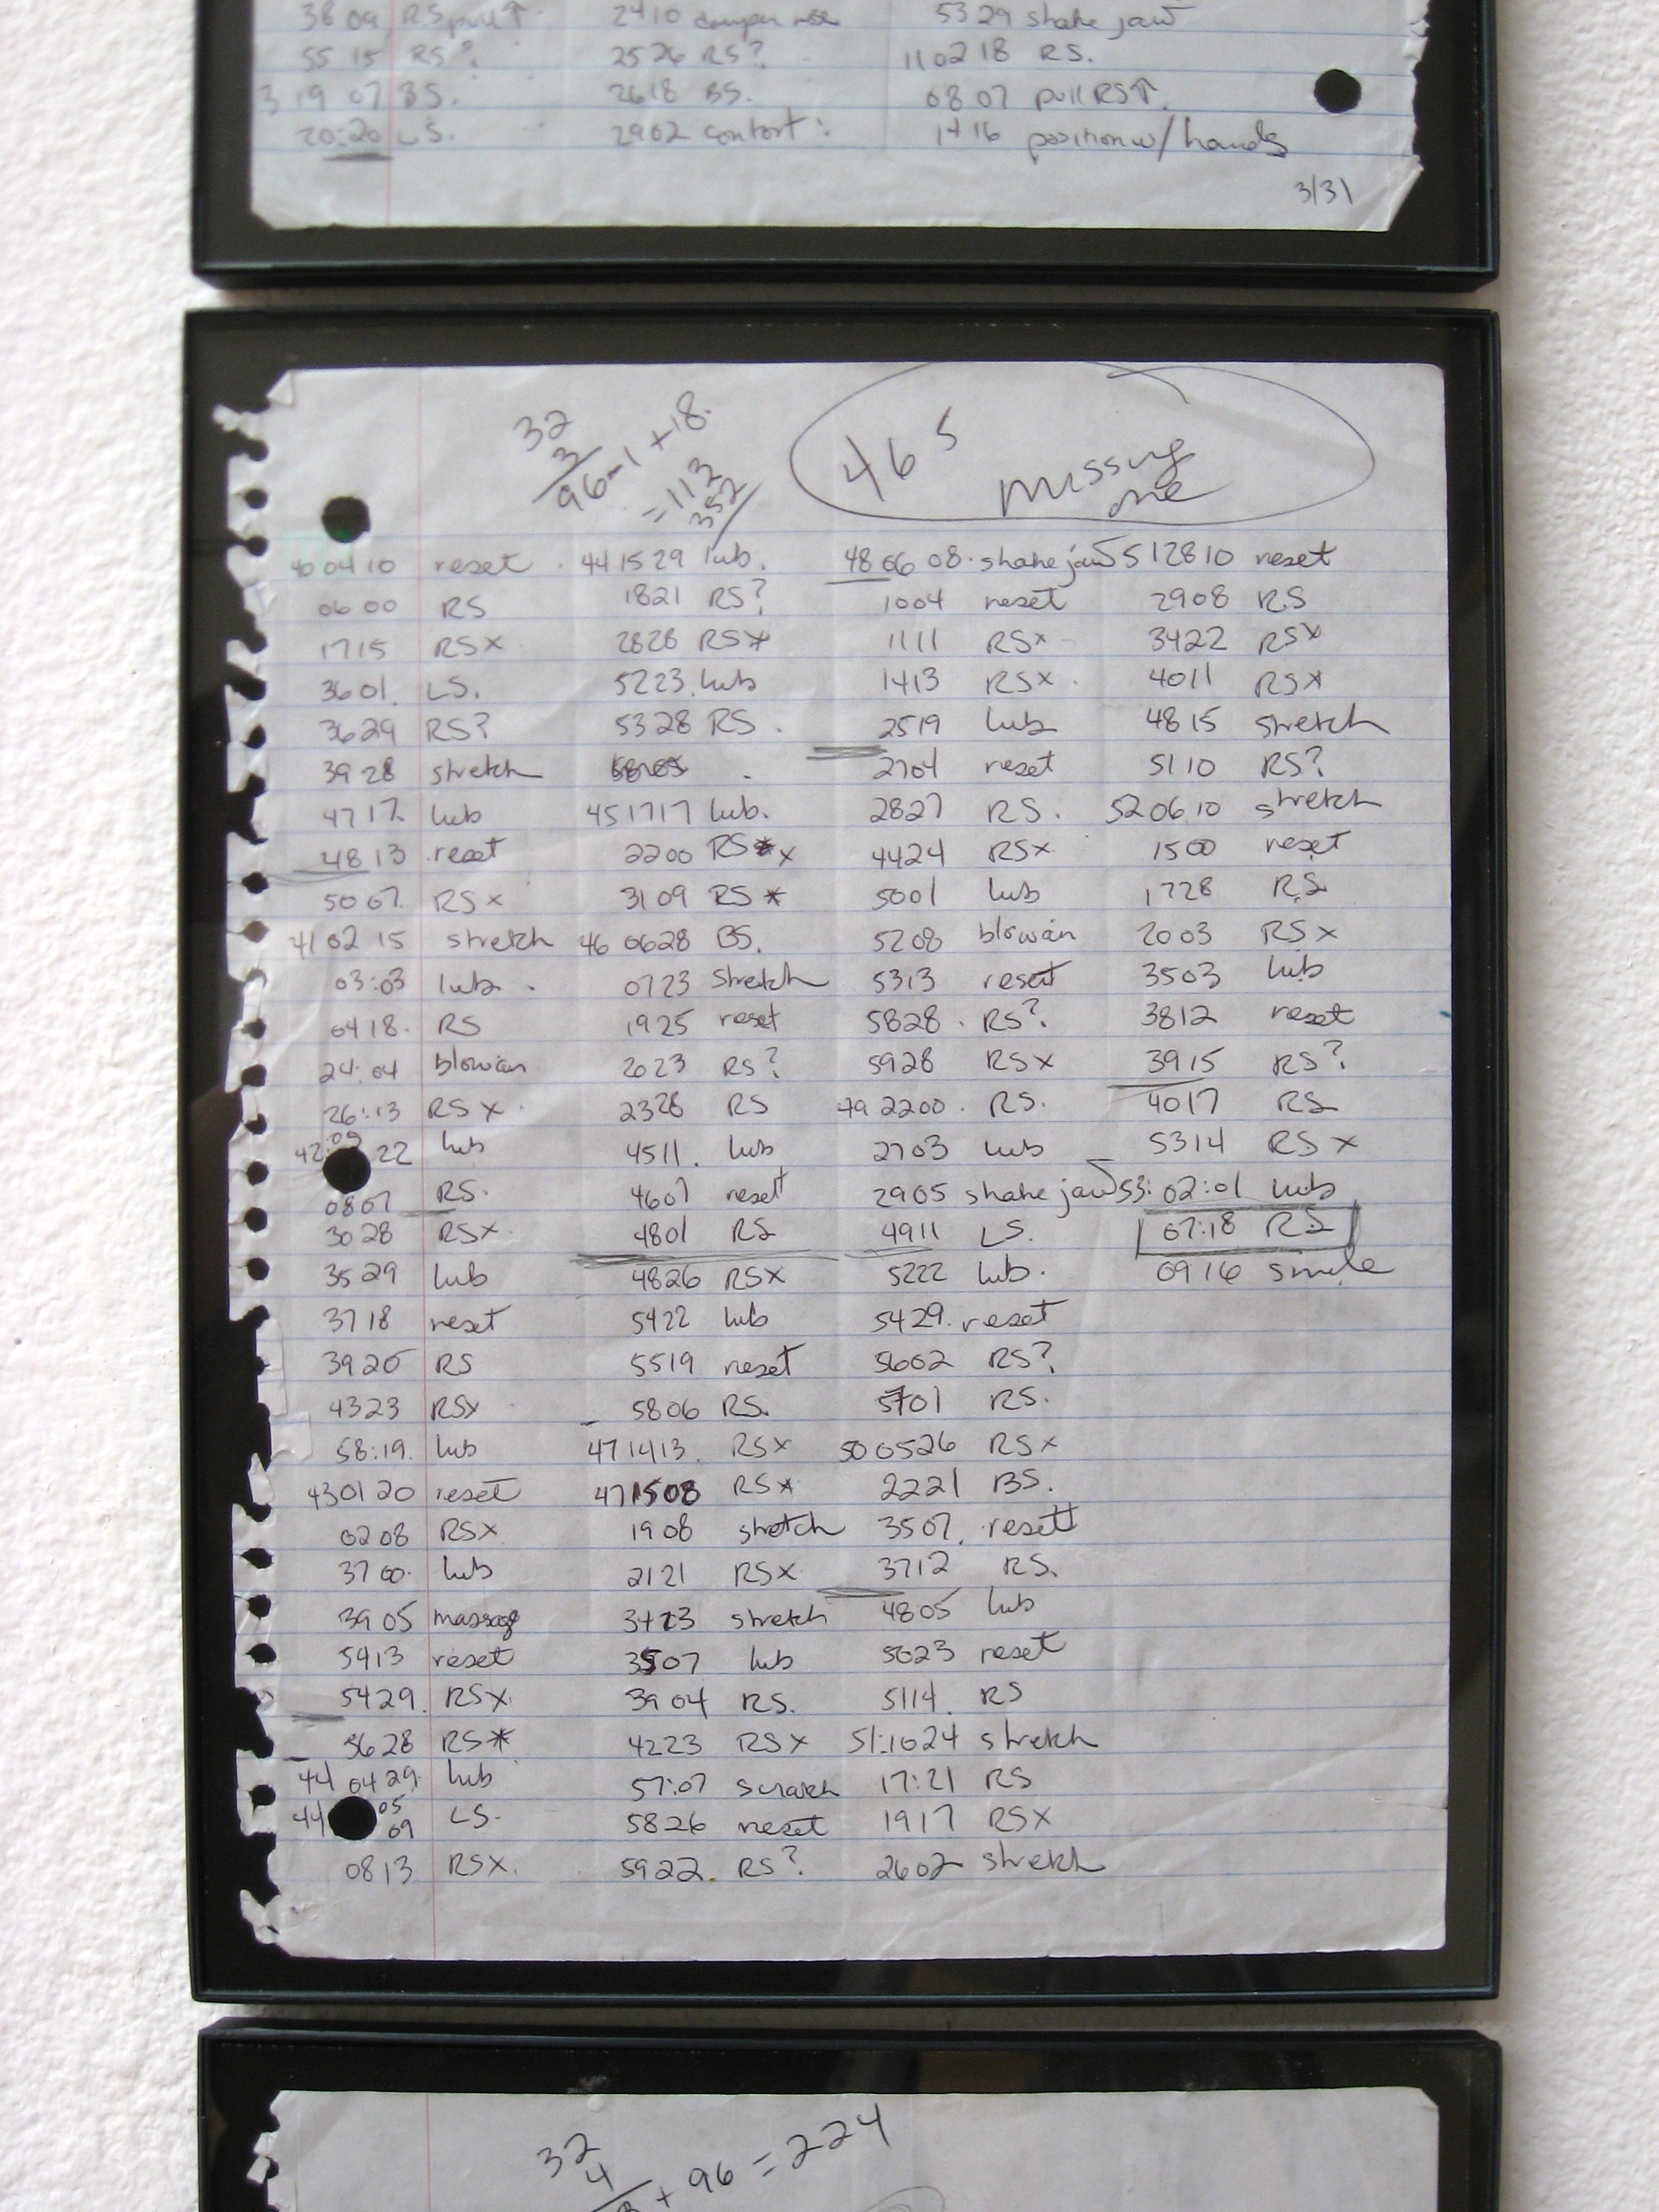 3809 RS pull↑ 2410 damper nose 5329 shake jaw
5515 RS? 2526 RS? 110218 RS.
3 19 07 BS. 2618 BS. 0807 pull RS↑.
20:20 LS. 2902 contort: 1416 position w/ hands
3/31
32
3
96-1+18.
=113
352
465
missing
one
400410 reset 441529 lub. 480608 shake jaw 512810 reset
0600 RS 1821 RS? 1004 reset 2908 RS
1715 RSx 2828 RSx 1111 RSx 3422 RSx
3601. LS. 5223. lub 1413 RSx 4011 RSx
3629 RS? 5328 RS 2519 lub 4815 stretch
3928 stretch 2704 reset 5110 RS?
4717. lub 451717 lub. 2827 RS. 520610 stretch
4813 reset 2200 RSx 4424 RSx 1500 reset
5007 RSx 3109 RS* 5001 lub 1728 RS
410215 stretch 460628 BS. 5208 blowan 2003 RSx
03:03 lub. 0723 stretch 5313 reset 3503 lub
0418. RS 1925 reset 5828. RS? 3812 reset
24:04 blowan 2023 RS? 5928 RSx 3915 RS?
26:13 RSx. 2328 RS 492200. RS. 4017 RS
42:09 22 lub 4511. lub 2703 lub 5314 RSx
0807 RS. 4607 reset 2905 shake jaw 53:02:01 lub
3028 RSx 4801 RS 4911 LS. 07:18 RS
3529 lub 4826 RSx 5222 lub. 0916 smile
3718 reset 5422 lub 5429. reset
3920 RS 5519 reset 5602 RS?
4323 RSx 5806 RS. 5701 RS.
58:19. lub 471413. RSx 500526 RSx
430120 reset 471508 RSx 2221 BS.
0208 RSx 1908 stretch 3507. resett
3700. lub 2121 RSx 3712 RS.
3905 massage 3423 stretch 4805 lub
5413 reset 3507 lub 5023 reset
5429. RSx. 3904 RS. 5114. RS
5628 RS* 4223 RSx 51:1024 stretch
44 0429. lub 57:07 scratch 17:21 RS
44 05 09 LS. 5826 reset 1917 RSx
0813 RSx. 5922. RS? 2602 stretch
32
4
+ 96 = 224